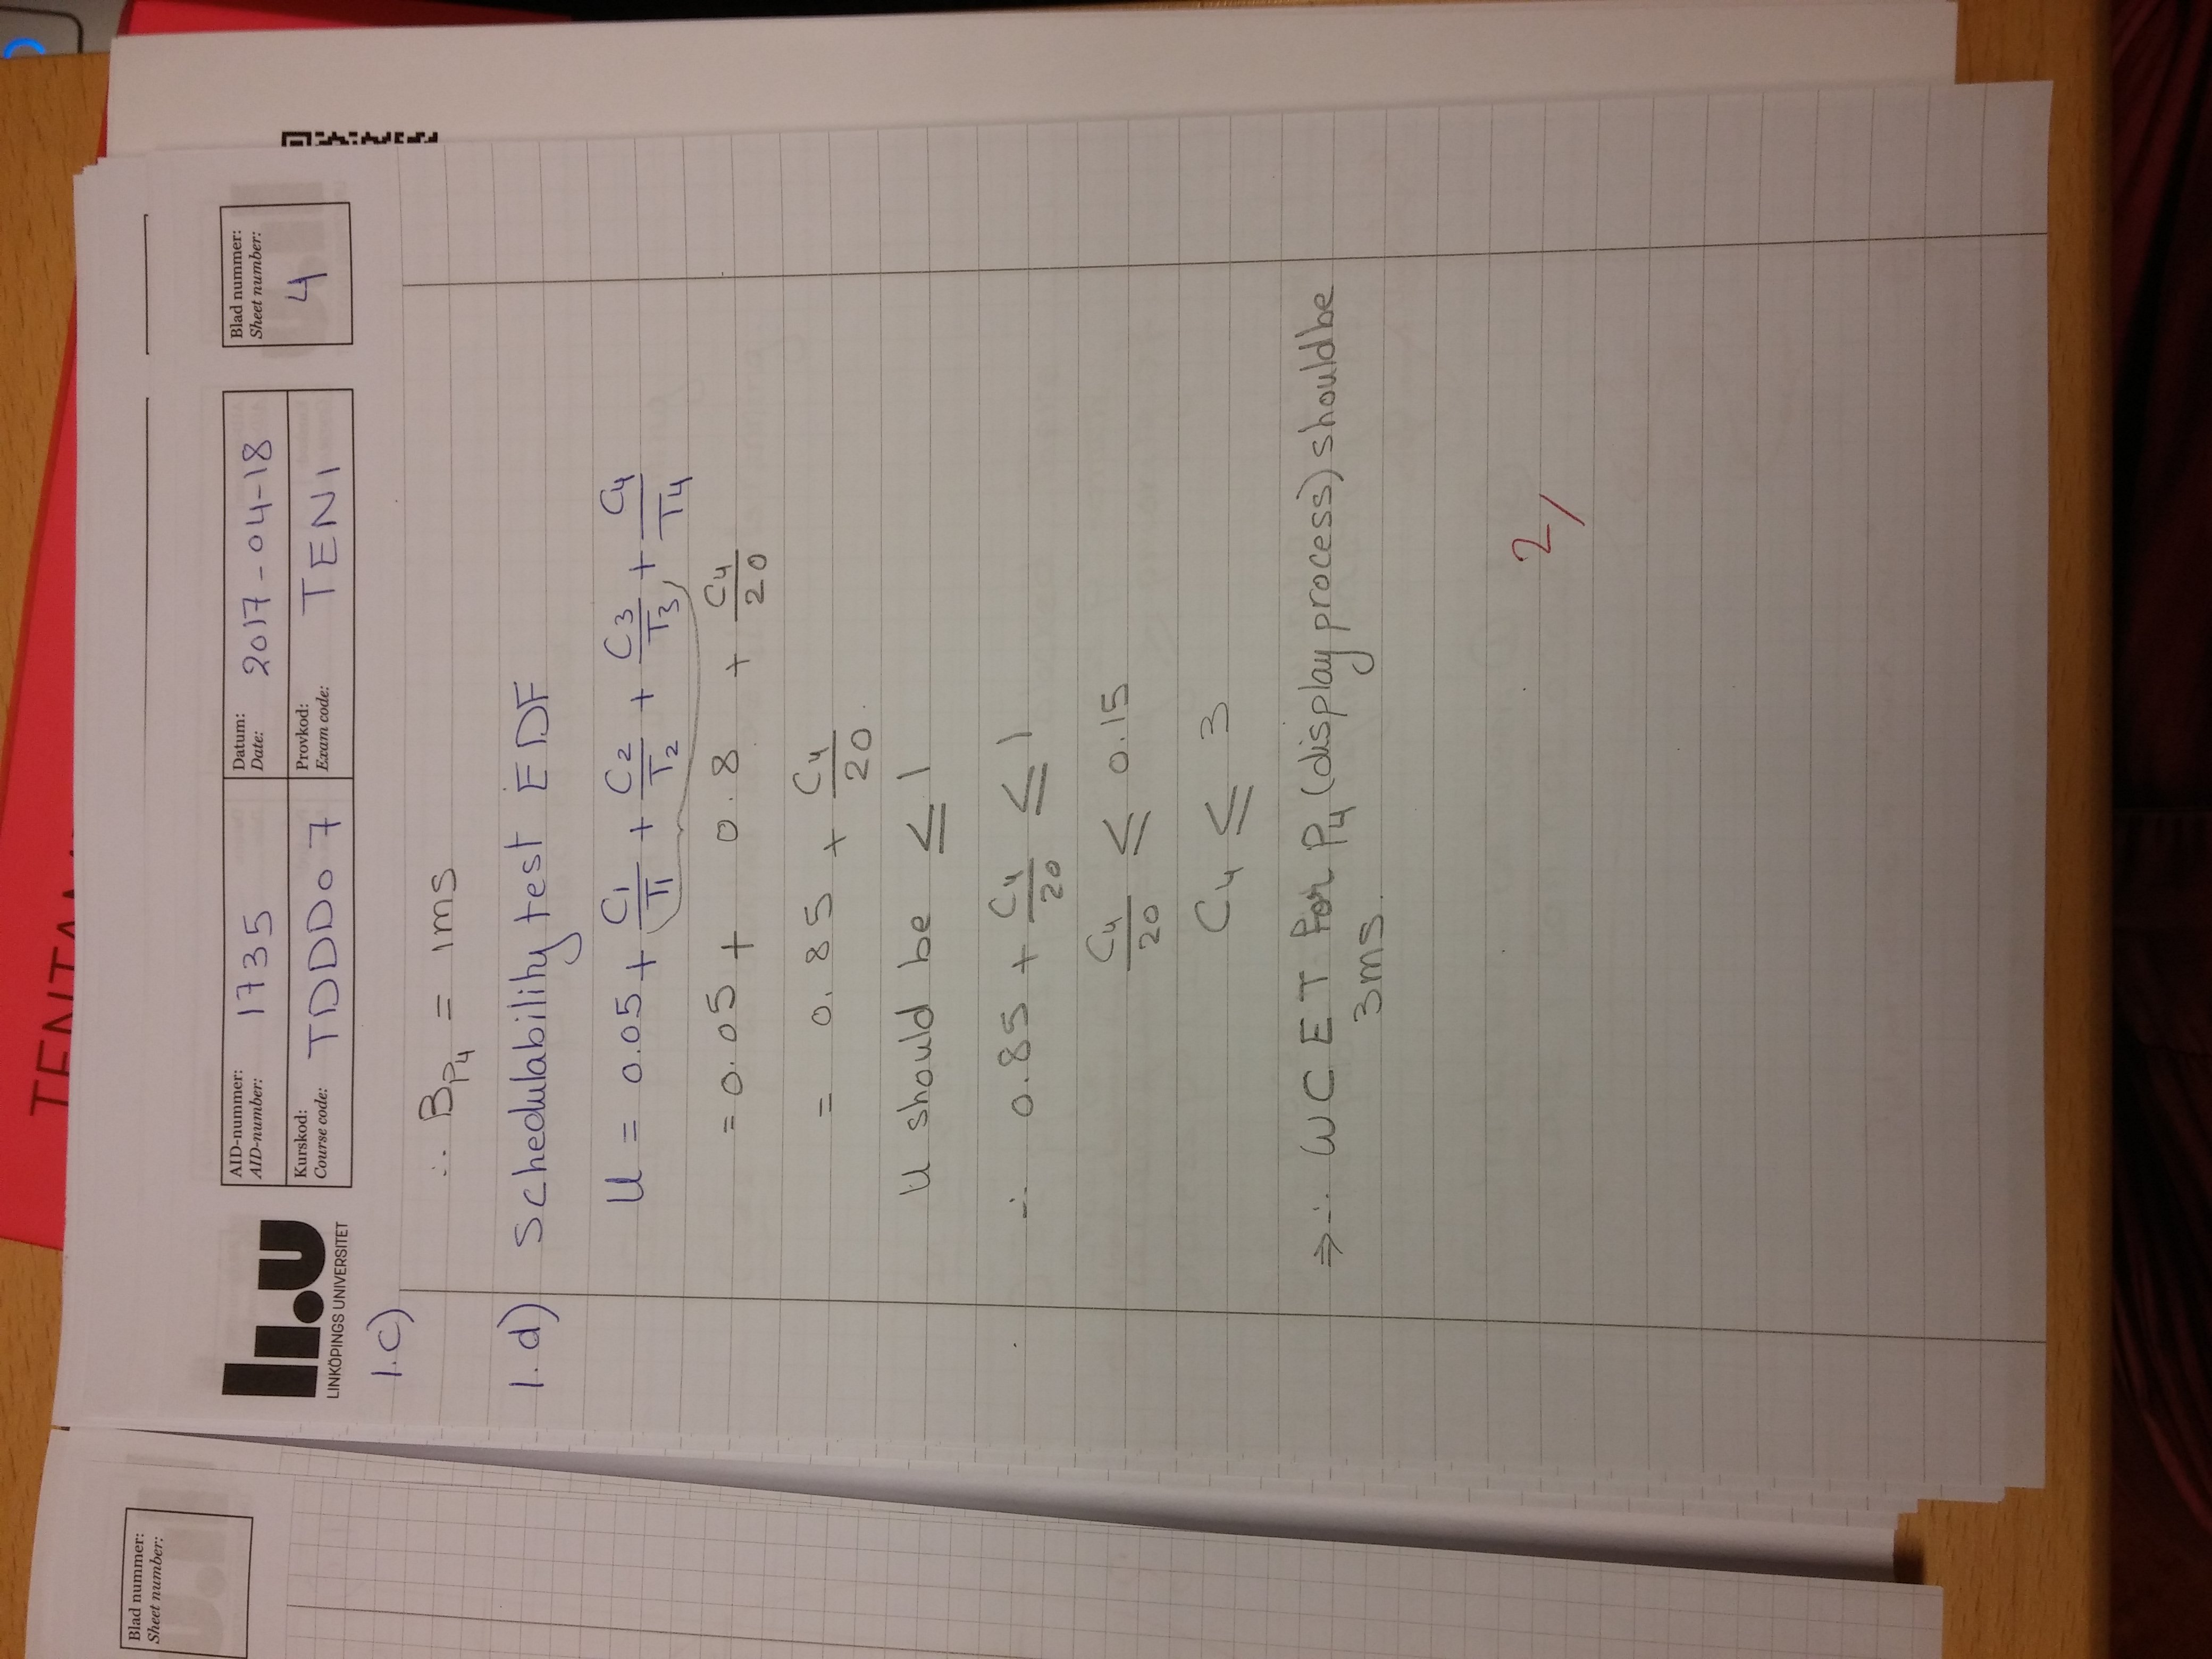 TENTA
LI.U
LINKÖPINGS UNIVERSITET
AID-nummer:
AID-number:
1735
Datum:
Date:
2017-04-18
Blad nummer:
Sheet number:
4
Kurskod:
Course code:
TDDD07
Provkod:
Exam code:
TEN1
1.c)
∴ B_P4 = 1ms
1.d) Schedulability test EDF
U = 0.05 + C1/T1 + C2/T2 + C3/T3 + C4/T4
= 0.05 + 0.8 + C4/20
= 0.85 + C4/20.
U should be ≤ 1
∴ 0.85 + C4/20 ≤ 1
C4/20 ≤ 0.15
C4 ≤ 3
⇒ ∴ WCET for P4 (display process) should be
3ms.
2/
Blad nummer:
Sheet number: